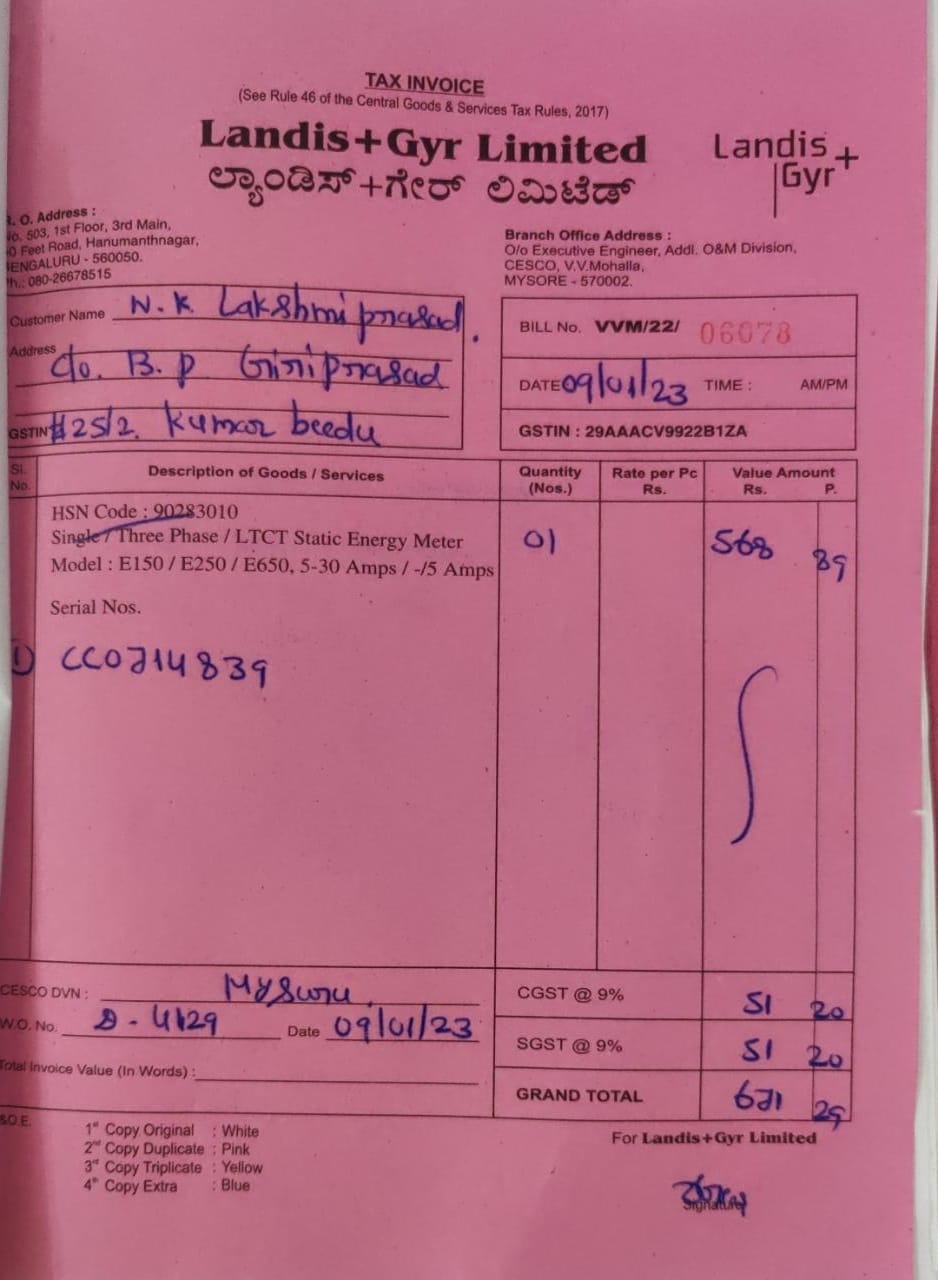 TAX INVOICE
(See Rule 46 of the Central Goods & Services Tax Rules, 2017)
Landis+Gyr Limited
ಲ್ಯಾಂಡಿಸ್+ಗೇರ್ ಲಿಮಿಟೆಡ್
Landis+
Gyr
R. O. Address :
No. 503, 1st Floor, 3rd Main,
Feet Road, Hanumanthnagar,
BENGALURU - 560050.
Ph.: 080-26678515
Branch Office Address :
O/o Executive Engineer, Addl. O&M Division,
CESCO, V.V.Mohalla,
MYSORE - 570002.
Customer Name N. K. Lakshmi prasad.
Address C/o. B. P Giriprasad
GSTIN #25/2. Kumar beedu
BILL No. VVM/22/ 06078
DATE 09/01/23 TIME : AM/PM
GSTIN : 29AAACV9922B1ZA
Sl. No. Description of Goods / Services Quantity (Nos.) Rate per Pc Rs. Value Amount Rs. P.
HSN Code : 90283010
Single / Three Phase / LTCT Static Energy Meter 01 568 89
Model : E150 / E250 / E650, 5-30 Amps / -/5 Amps
Serial Nos.
1) CC0714839
CESCO DVN : Mysuru
CGST @ 9% 51 20
W.O. No. Date 09/01/23
SGST @ 9% 51 20
Total Invoice Value (In Words) :
GRAND TOTAL 671 29
&O.E.
1st Copy Original : White
2nd Copy Duplicate : Pink
3rd Copy Triplicate : Yellow
4th Copy Extra : Blue
For Landis+Gyr Limited
Signature